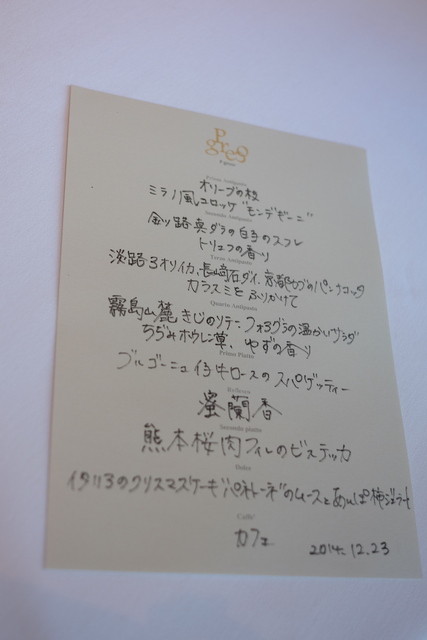 PgreS
Primo Antipasto
オリーブの枝
ミラノ風コロッケ"モンデギーニ"
Secondo Antipasto
釧路真ダラの白子のスフレ
トリュフの香り
Terzo Antipasto
淡路アオリイカ、長崎石ダイ、京都カブのパンナコッタ
カラスミをふりかけて
Quarto Antipasto
霧島山麓きじのソテー、フォアグラの温かいサラダ
ちぢみホウレン草、ゆずの香り
Primo Piatto
ブルゴーニュ仔牛ロースのスパゲッティー
蜜蘭香
Secondo piatto
熊本桜肉フィレのビステッカ
Dolce
イタリアのクリスマスケーキ"パネトーネ"のムースとあんぽ柿ジェラート
Caffe'
カフェ
2014.12.23